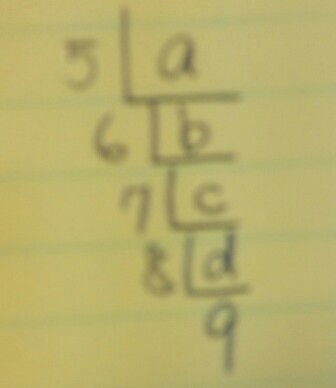 5 a
6 b
7 c
8 d
9